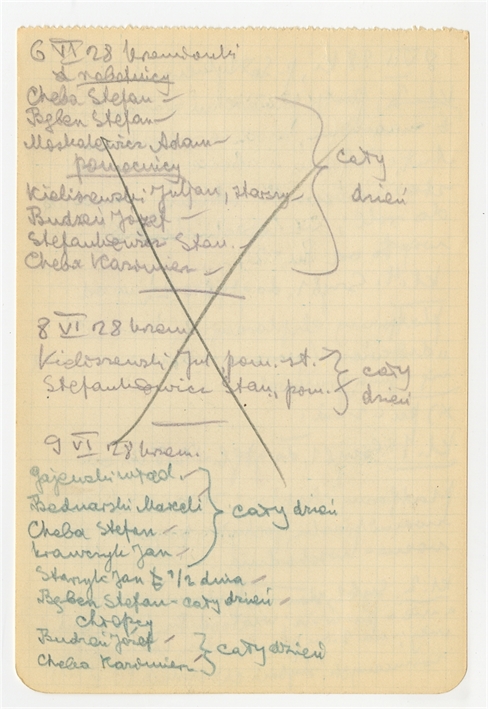 6 VI 28 kremionki
robotnicy
Cheba Stefan –
Bęben Stefan –
Moskalewicz Adam –
pomocnicy
Kieliszewski Juljan, starszy –
cały
dzień
Budzeń Józef –
Stefankowicz Stan. –
Cheba Kazimierz –
8 VI 28 krem.
Kieliszewski Jul. pom. st.
Stefankowicz Stan., pom.
cały
dzień
9 VI 28 krem.
Gajewski Wład. –
Bednarski Marceli
cały dzień
Cheba Stefan –
Krawczyk Jan –
Staszyk Jan 1/2 dnia –
Bęben Stefan – cały dzień –
chłopcy
Budzeń Józef –
Cheba Kazimierz –
cały dzień